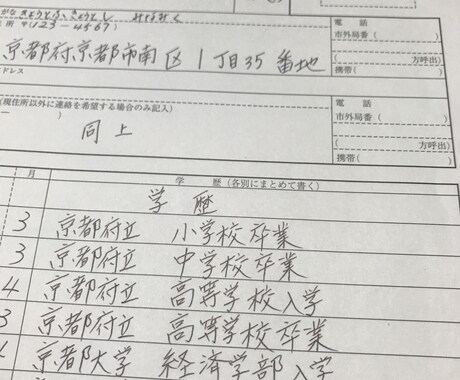 がな きょうとふ きょうとし みなみく
所 〒(123-4567)
電 話
市外局番 (
京都府京都市南区1丁目35番地
( 方呼出)
携帯 ( )
ドレス
(現住所以外に連絡を希望する場合のみ記入)
電 話
市外局番 ( )
同上
( 方呼出)
携帯 ( )
月 学 歴 (各別にまとめて書く)
学 歴
3 京都府立 小学校卒業
3 京都府立 中学校卒業
4 京都府立 高等学校入学
3 京都府立 高等学校卒業
京都大学 経済学部入学